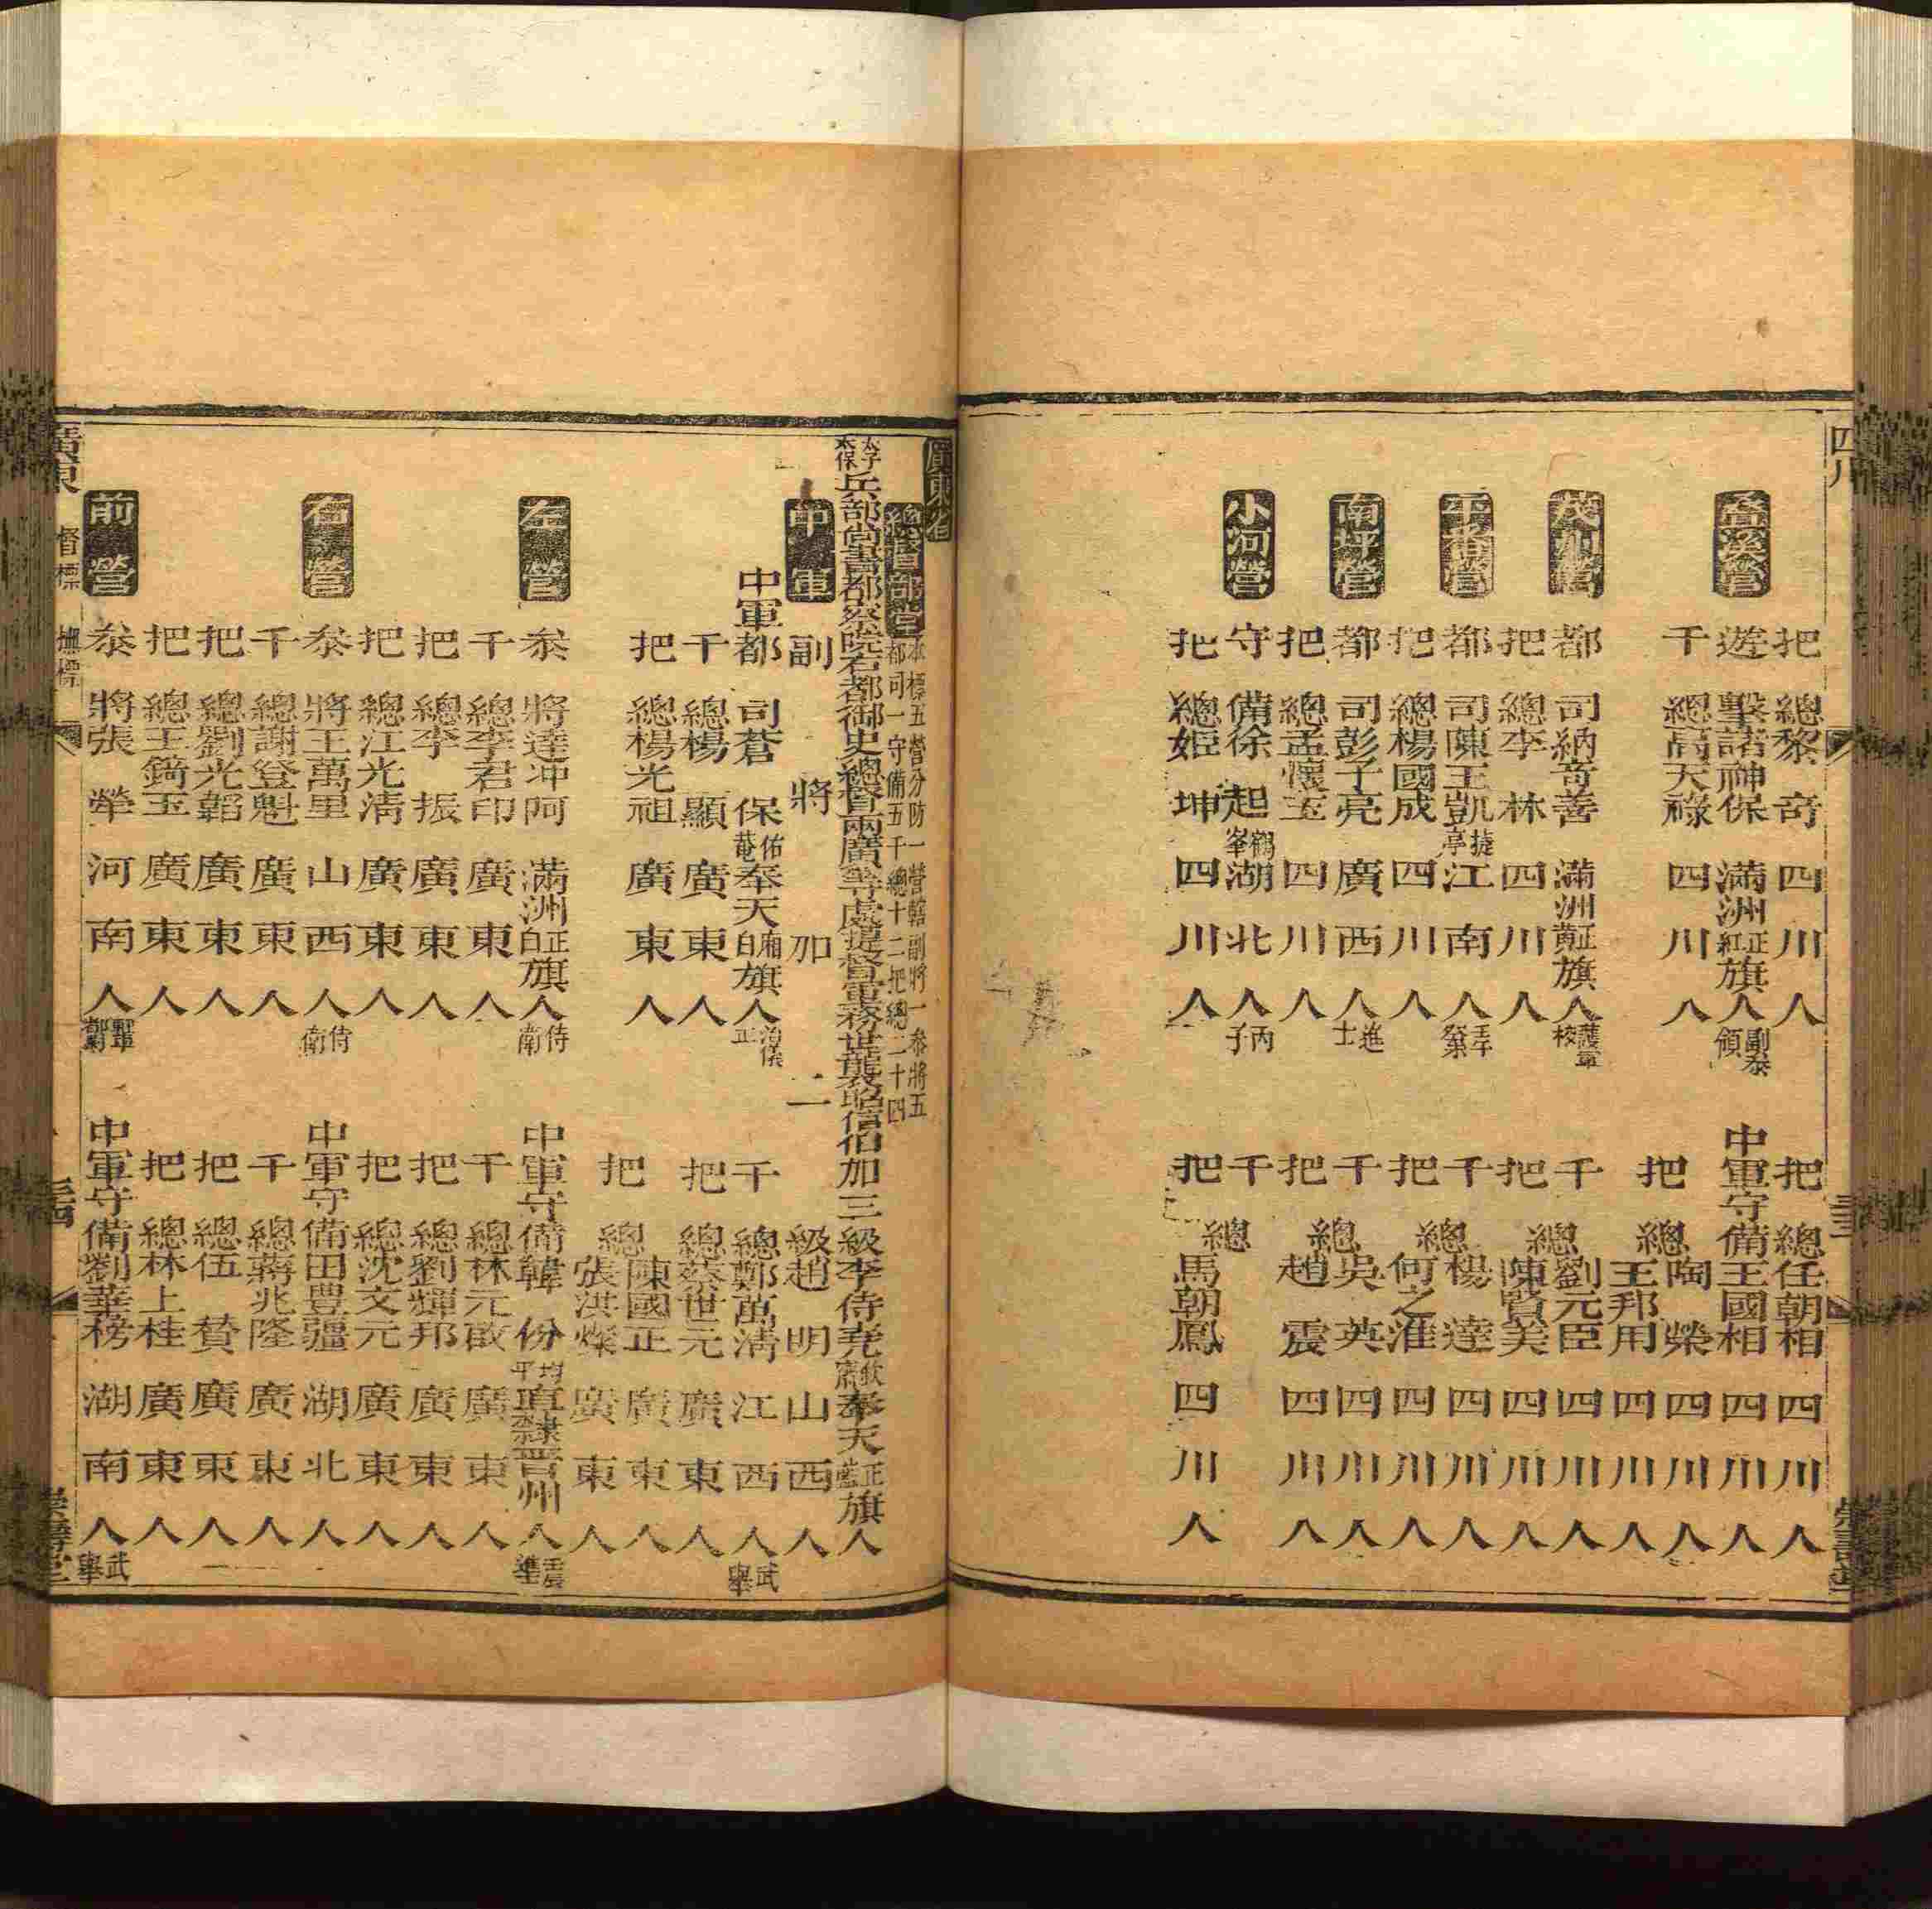 四川
把總黎奇四川人
把總任朝相四川人
疊溪營
遊擊諾神保滿洲正紅旗人副叅領
中軍守備王國相四川人
千總高天祿四川人
把總陶榮四川人
王邦用四川人
茂州營
都司納奇善滿洲正黃旗人護軍校
千總劉元臣四川人
把總李林四川人
把總陳賢美四川人
平番營
都司陳王凱捷亭江南人
千總楊達四川人
把總楊國成四川人
把總何之淮四川人
南坪營
都司彭子亮廣西人進士
千總吳英四川人
把總孟懷玉四川人
把總趙震四川人
小河營
守備徐起鶴峯湖北人丙子
千總
把總姬坤四川人
把總馬朝鳳四川人
廣東省
總督部堂
本標五營分防一營轄副將一叅將五
都司一守備五千總十二把總二十四
太子太保兵部尚書都察院右都御史總督兩廣等處提督軍務世襲昭信伯加三級李侍堯欽齋奉天正藍旗人
中軍
副將加二級趙明山西人
中軍都司蒼保佑菴奉天廂白旗人
千總鄭萬淸江西人武舉
千總楊顯廣東人
把總蔡世元廣東人
把總楊光祖廣東人
把總陳國正廣東人
張洪燦廣東人
左營
叅將達冲阿滿洲正白旗人侍衛
中軍守備韓份均平直隸晉州人壬辰進
千總李君印廣東人
千總林元敢廣東人
把總李振廣東人
把總劉輝邦廣東人
把總江光淸廣東人
把總沈文元廣東人
右營
叅將王萬里山西人侍衛
中軍守備田豊疆湖北人
千總謝登魁廣東人
千總蔣兆隆廣東人
把總劉光韜廣東人
把總伍贊廣東人
把總王錡玉廣東人
把總林上桂廣東人
前營
叅將張犖河南人
中軍守備劉華榜湖南人武舉
廣東
督標
撫標